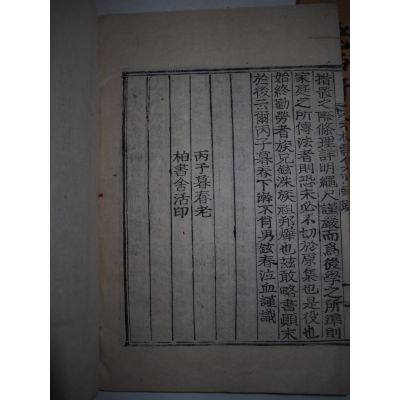 措叢之際條理詳明繩尺謹嚴而爲後學之所準則
家庭之所傳法者則恐未必不切於原集也是役也
始終勤勞者族兄鉉洙族祖邦燁也玆敢略書顚末
於後云爾丙子暮春下澣不肖男鉉春泣血謹識
丙子暮春老
柏書舍活印